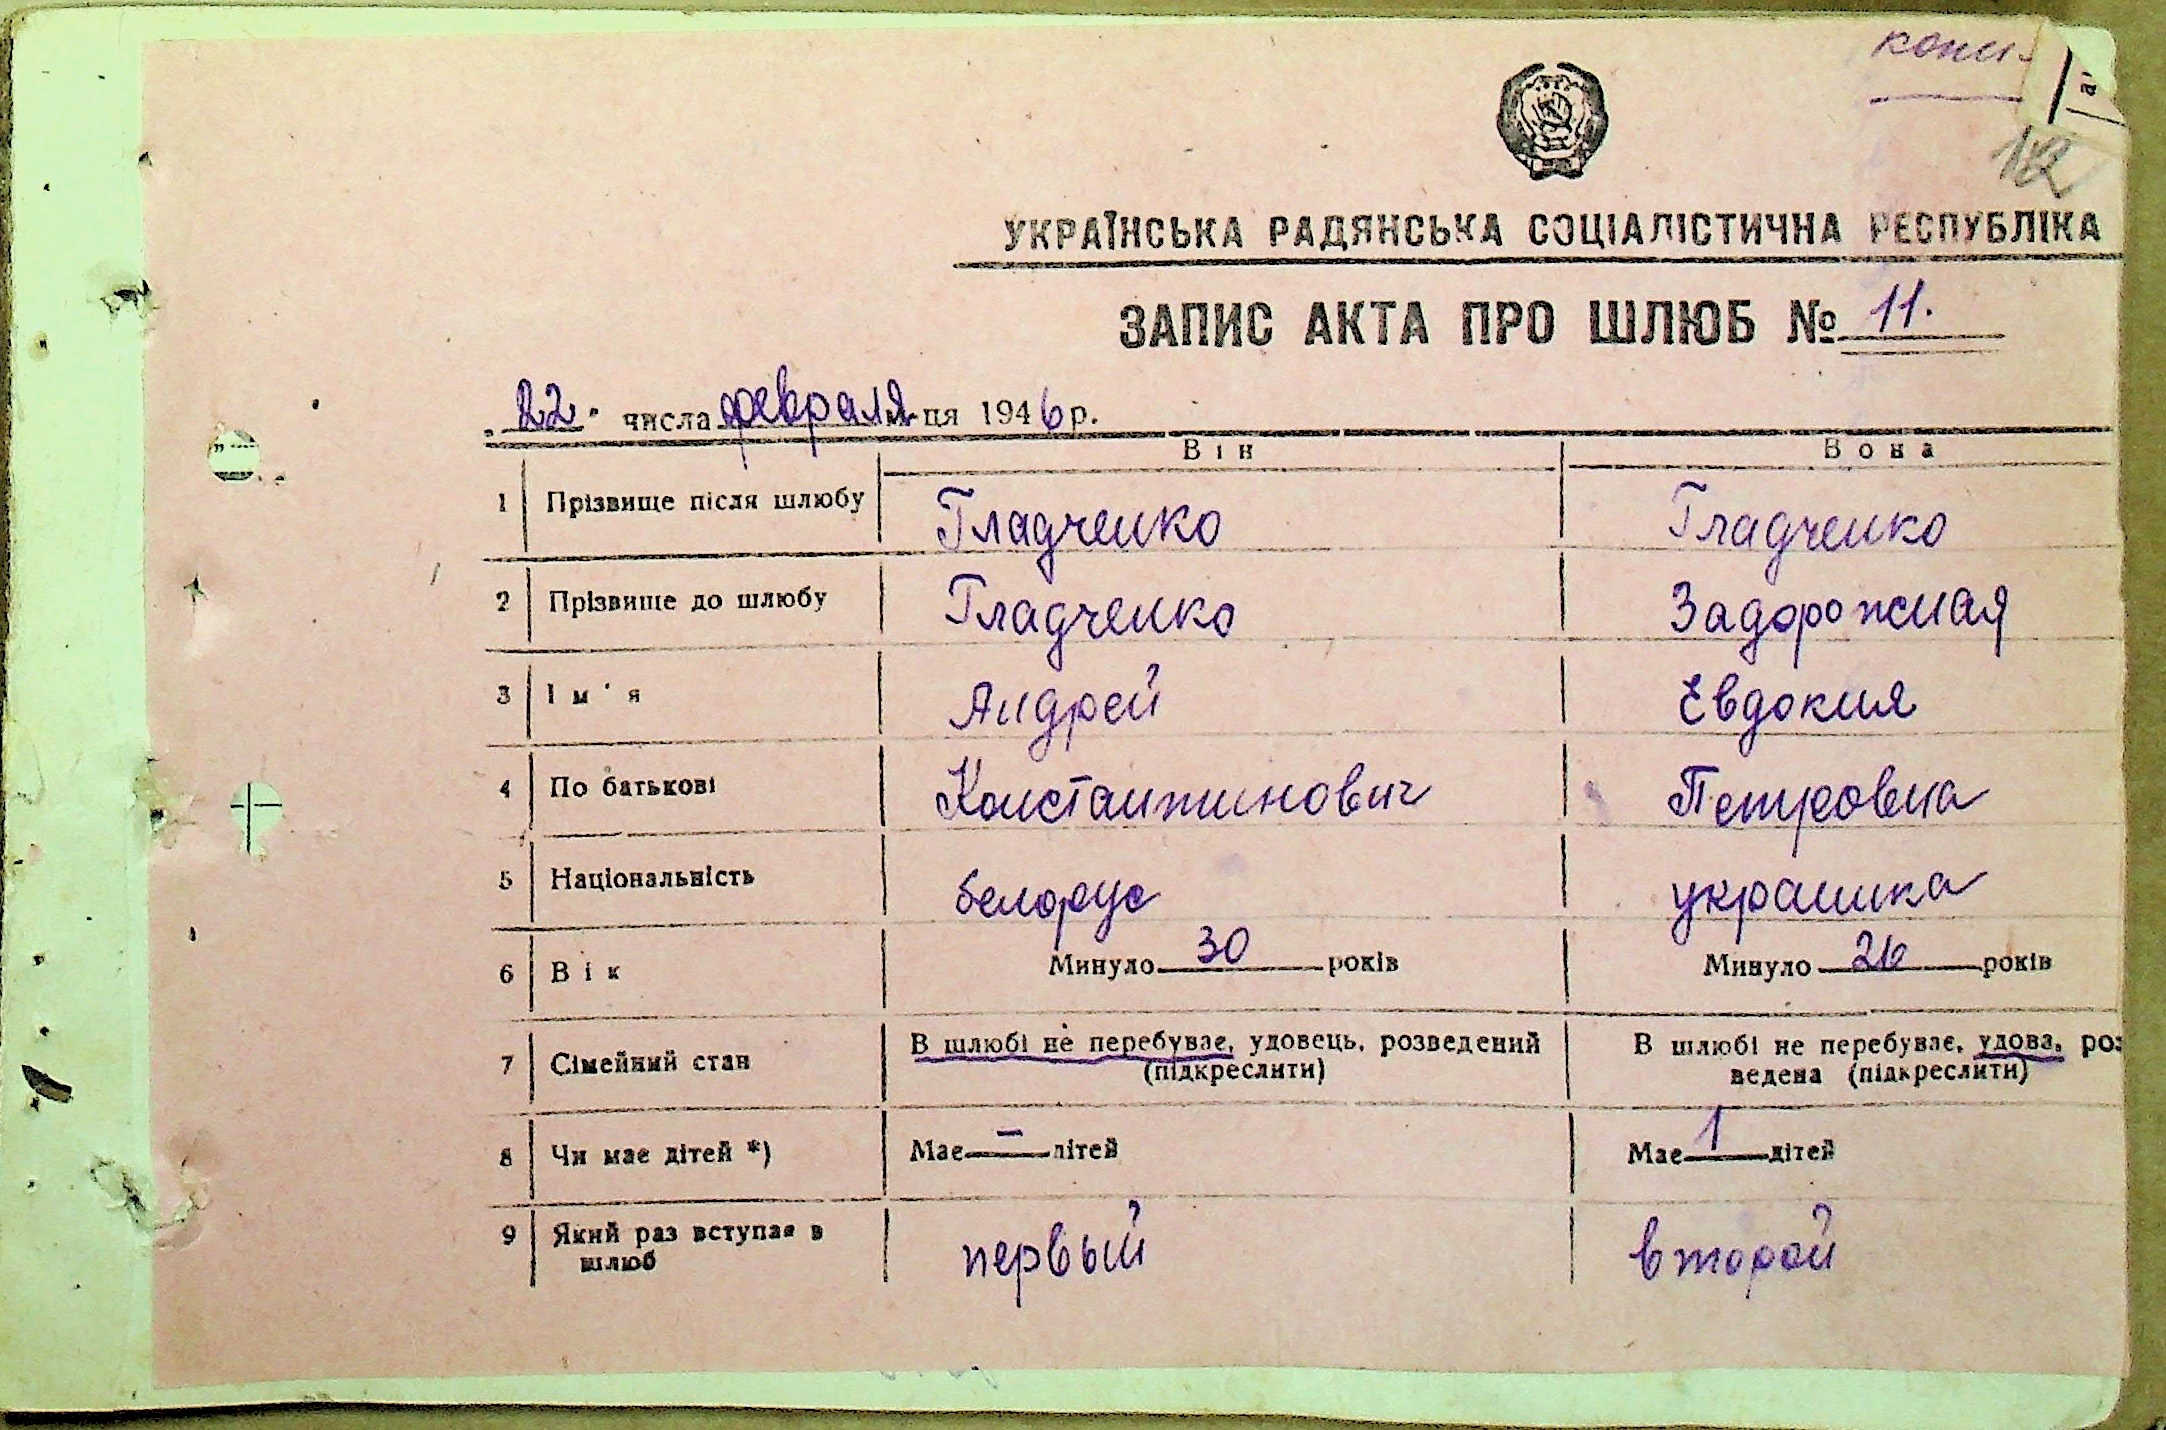 копи
12
УКРАЇНСЬКА РАДЯНСЬКА СОЦІАЛІСТИЧНА РЕСПУБЛІКА
ЗАПИС АКТА ПРО ШЛЮБ № 11.
22. числа февраля м-ця 1946 р.
Він Вона
1 Прізвище після шлюбу Гладченко Гладченко
2 Прізвище до шлюбу Гладченко Задорожная
3 Ім'я Андрей Евдокия
4 По батькові Константинович Петровна
5 Національність белорус украинка
6 Вік Минуло 30 років Минуло 26 років
7 Сімейний стан В шлюбі не перебуває, удовець, розведений (підкреслити) В шлюбі не перебуває, удова, роз
ведена (підкреслити)
8 Чи має дітей *) Має – дітей Має 1 дітей
9 Який раз вступає в шлюб первый второй